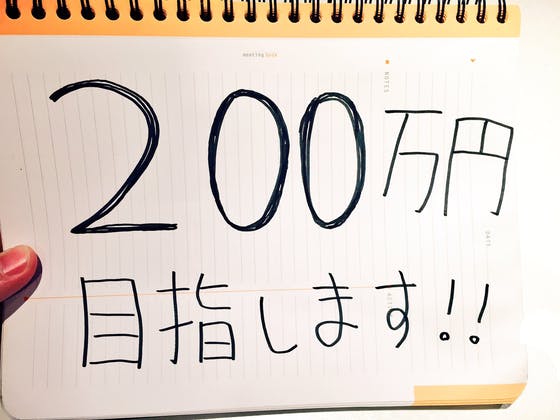 meeting book
NOTES
200万円
DATE
目指します!!